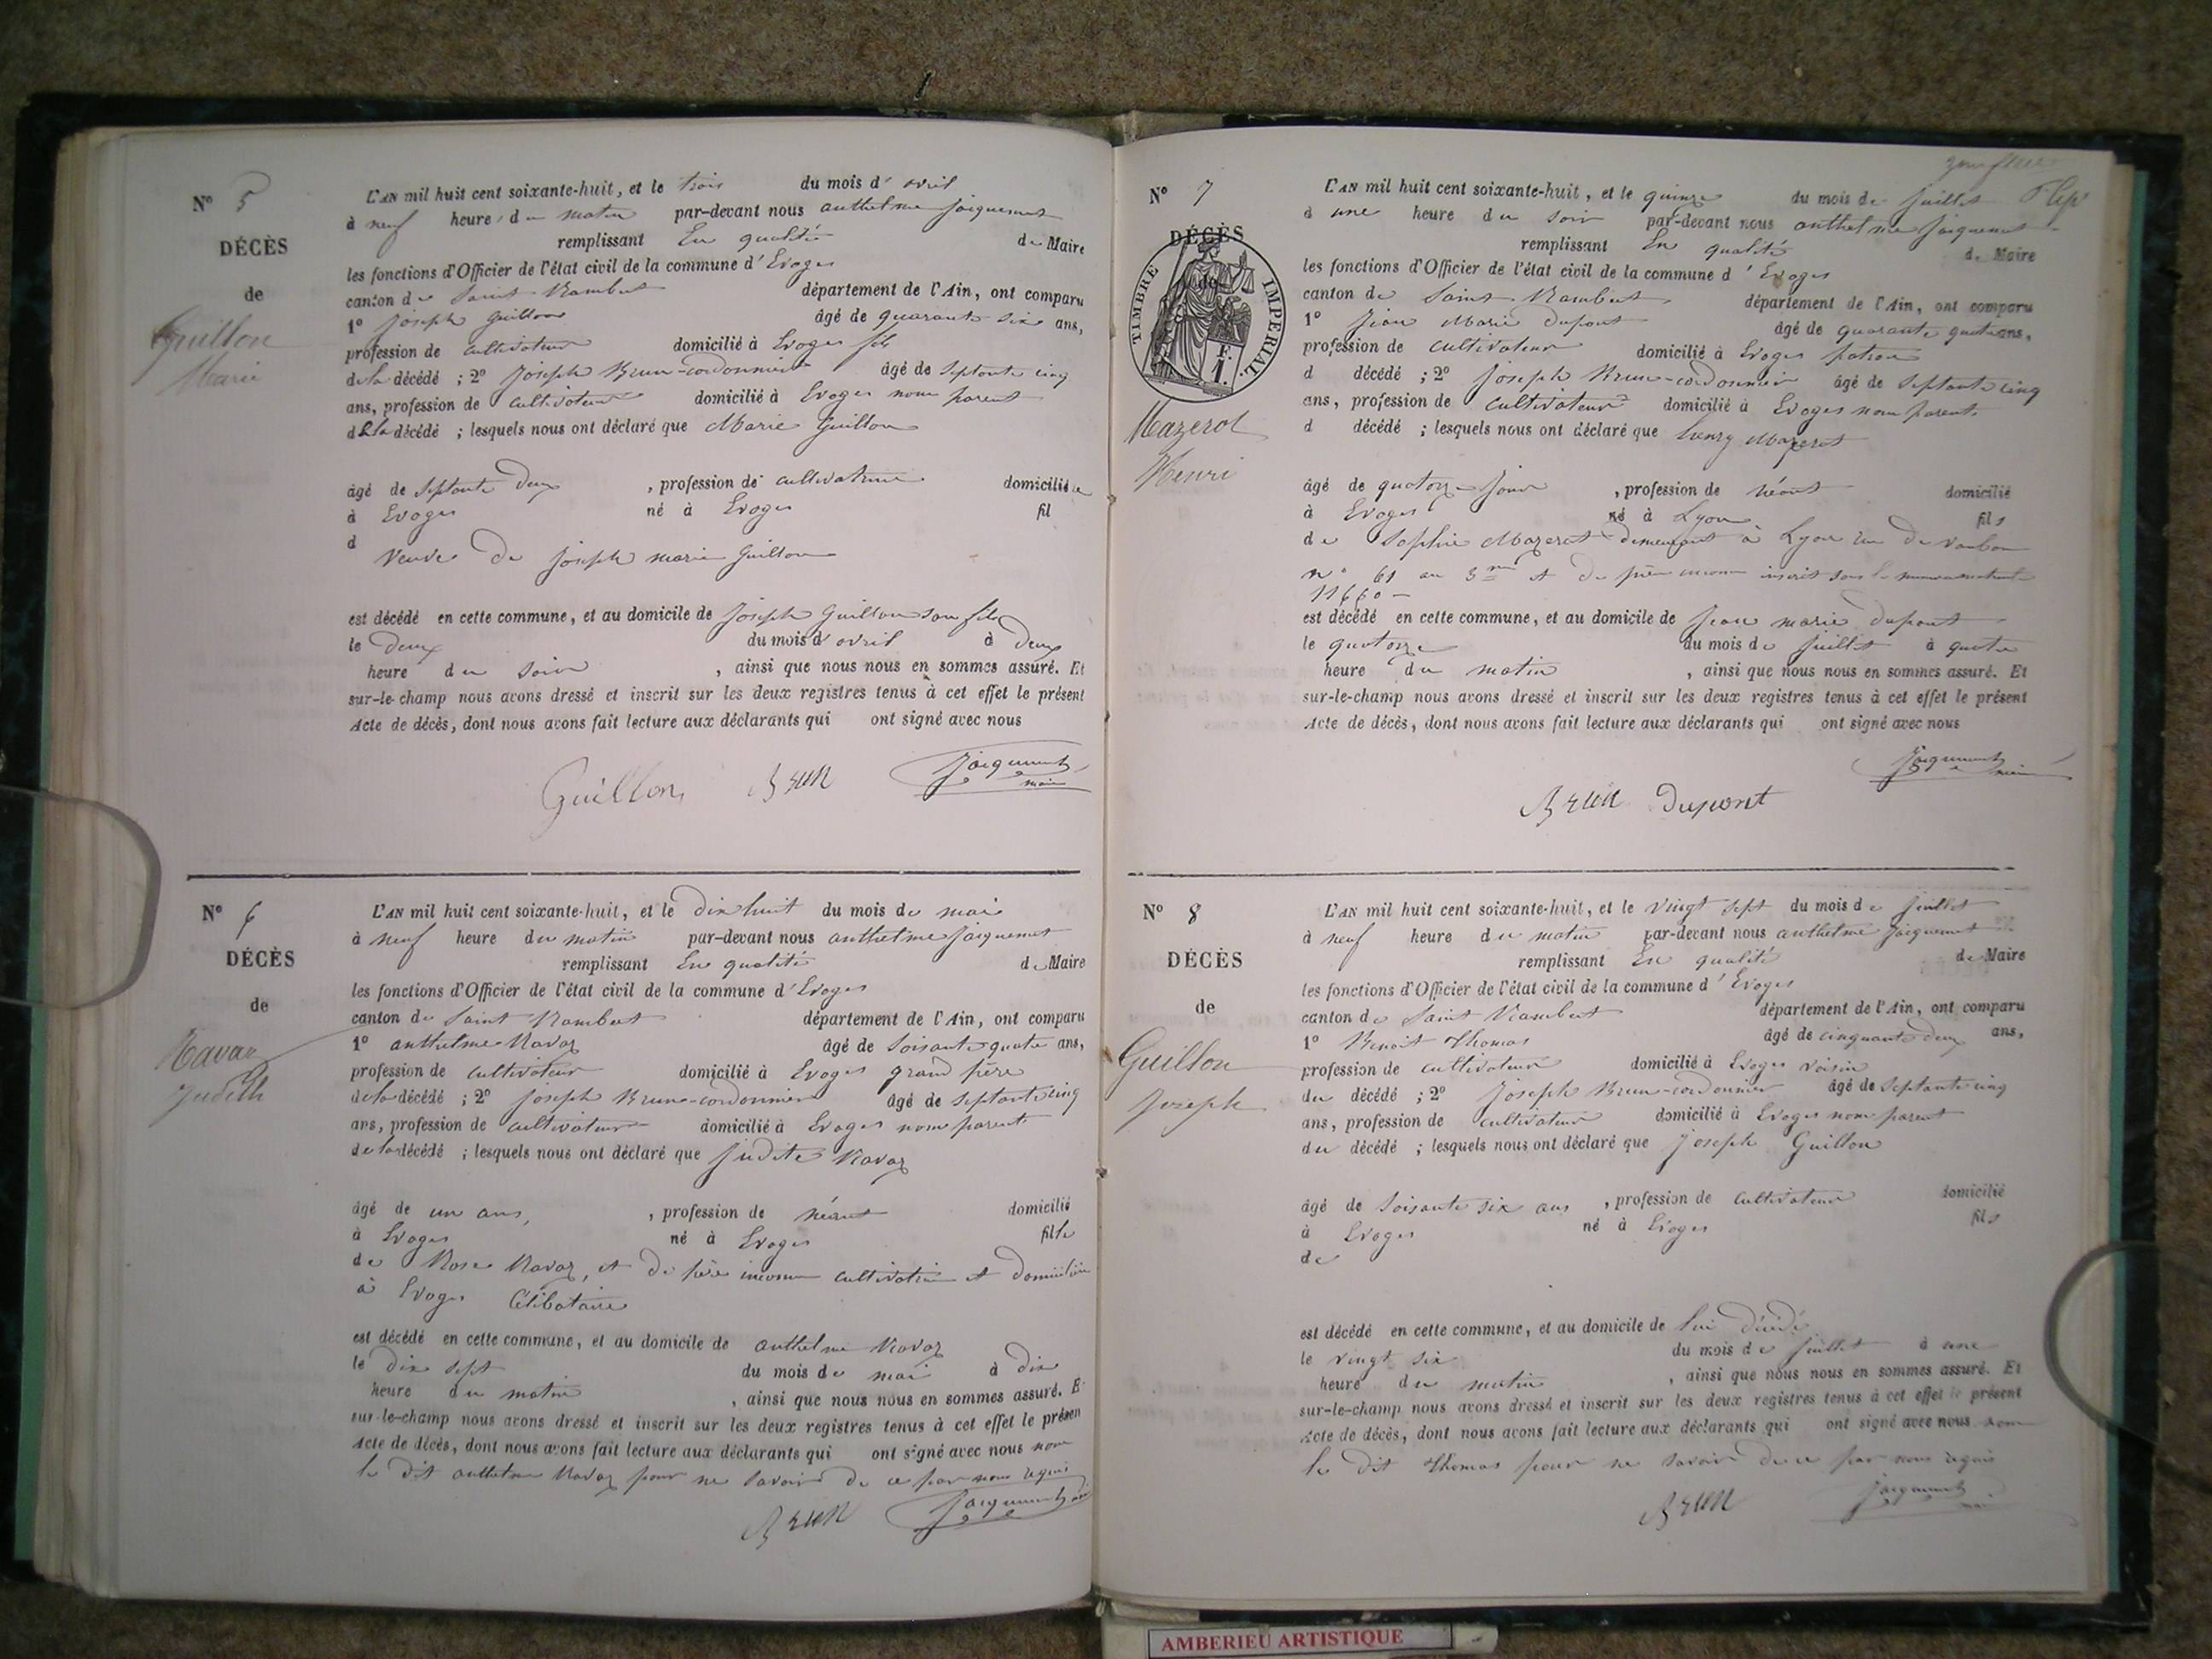 N° 5
DÉCÈS
de
Guillon
Marie
L'AN mil huit cent soixante-huit, et le trois du mois d'avril
à neuf heure du matin par-devant nous anthelme Jacquemet
remplissant En qualité de Maire
les fonctions d'Officier de l'état civil de la commune d'Evoges
canton de Saint Rambert département de l'Ain, ont comparu
1° Joseph Guillon âgé de quarante six ans,
profession de cultivateur domicilié à Evoges fils
de la décédé ; 2° Joseph Brun-cordonnier âgé de septante cinq
ans, profession de cultivateur domicilié à Evoges nom parent
de la décédé ; lesquels nous ont déclaré que Marie Guillon
âgé de septante deux , profession de cultivatrice domicilié
à Evoges né à Evoges fil
d
veuve de joseph marie Guillon
est décédé en cette commune, et au domicile de Joseph Guillon son fils
le deux du mois d'avril à deux
heure du soir , ainsi que nous nous en sommes assuré. Et
sur-le-champ nous avons dressé et inscrit sur les deux registres tenus à cet effet le présent
Acte de décès, dont nous avons fait lecture aux déclarants qui ont signé avec nous
Guillon Brun Jacquemet maire
N° 6
DÉCÈS
de
Ravaz
Judith
L'AN mil huit cent soixante-huit, et le dix huit du mois de mai
à neuf heure du matin par-devant nous anthelme Jacquemet
remplissant En qualité de Maire
les fonctions d'Officier de l'état civil de la commune d'Evoges
canton de Saint Rambert département de l'Ain, ont comparu
1° anthelme Ravaz âgé de soisante quatre ans,
profession de cultivateur domicilié à Evoges grand père
de la décédé ; 2° Joseph Brun-cordonnier âgé de septante cinq
ans, profession de cultivateur domicilié à Evoges nom parent
de la décédé ; lesquels nous ont déclaré que Judite Ravaz
âgé de un ans, , profession de néant domicilié
à Evoges né à Evoges fille
de Rose Ravaz, et de père inconnu cultivatrice et domiciliée
à Evoges Célibataire
est décédé en cette commune, et au domicile de anthelme Ravaz
le dix sept du mois de mai à dix
heure du matin , ainsi que nous nous en sommes assuré. E
sur-le-champ nous avons dressé et inscrit sur les deux registres tenus à cet effet le présen
Acte de décès, dont nous avons fait lecture aux déclarants qui ont signé avec nous non
le dit anthelme Ravaz pour ne savoir de ce par nous requis
Brun Jacquemet
N° 7
DÉCÈS
de
TIMBRE IMPÉRIAL
F. 1.
Mazerot
Henri
L'AN mil huit cent soixante-huit, et le quinze du mois de juillet
à une heure du soir par-devant nous anthelme Jacquemet
remplissant En qualité de Maire
les fonctions d'Officier de l'état civil de la commune d'Evoges
canton de Saint Rambert département de l'Ain, ont comparu
1° Jean Marie Dupont âgé de quarante quatre ans,
profession de cultivateur domicilié à Evoges patron
d décédé ; 2° Joseph Brun-cordonnier âgé de septante cinq
ans, profession de cultivateur domicilié à Evoges nom parent
d décédé ; lesquels nous ont déclaré que henry Mazerot
âgé de quatorze jour , profession de néant domicilié
à Evoges né à Lyon fils
de Sophie Mazerot demeurant à Lyon rue de vauban
n° 61 au 3me et de père inconnu inscrit sous le
11660
est décédé en cette commune, et au domicile de Jean marie Dupont
le quatorze du mois de juillet à quatre
heure du matin , ainsi que nous nous en sommes assuré. Et
sur-le-champ nous avons dressé et inscrit sur les deux registres tenus à cet effet le présent
Acte de décès, dont nous avons fait lecture aux déclarants qui ont signé avec nous
Jacquemet maire
Brun Dupont
N° 8
DÉCÈS
de
Guillon
Joseph
L'AN mil huit cent soixante-huit, et le vingt sept du mois de juillet
à neuf heure du matin par-devant nous anthelme Jacquemet
remplissant En qualité de Maire
les fonctions d'Officier de l'état civil de la commune d'Evoges
canton de Saint Rambert département de l'Ain, ont comparu
1° Benoit Thomas âgé de cinquante deux ans,
profession de cultivateur domicilié à Evoges voisin
du décédé ; 2° Joseph Brun-cordonnier âgé de septante cinq
ans, profession de cultivateur domicilié à Evoges nom parent
du décédé ; lesquels nous ont déclaré que Joseph Guillon
âgé de soisante six ans , profession de cultivateur domicilié
à Evoges né à Evoges fils
de
est décédé en cette commune, et au domicile de lui décédé
le vingt six du mois de juillet à une
heure du matin , ainsi que nous nous en sommes assuré. Et
sur-le-champ nous avons dressé et inscrit sur les deux registres tenus à cet effet le présent
Acte de décès, dont nous avons fait lecture aux déclarants qui ont signé avec nous non
le dit Thomas pour ne savoir de ce par nous requis
Brun Jacquemet
AMBERIEU ARTISTIQUE